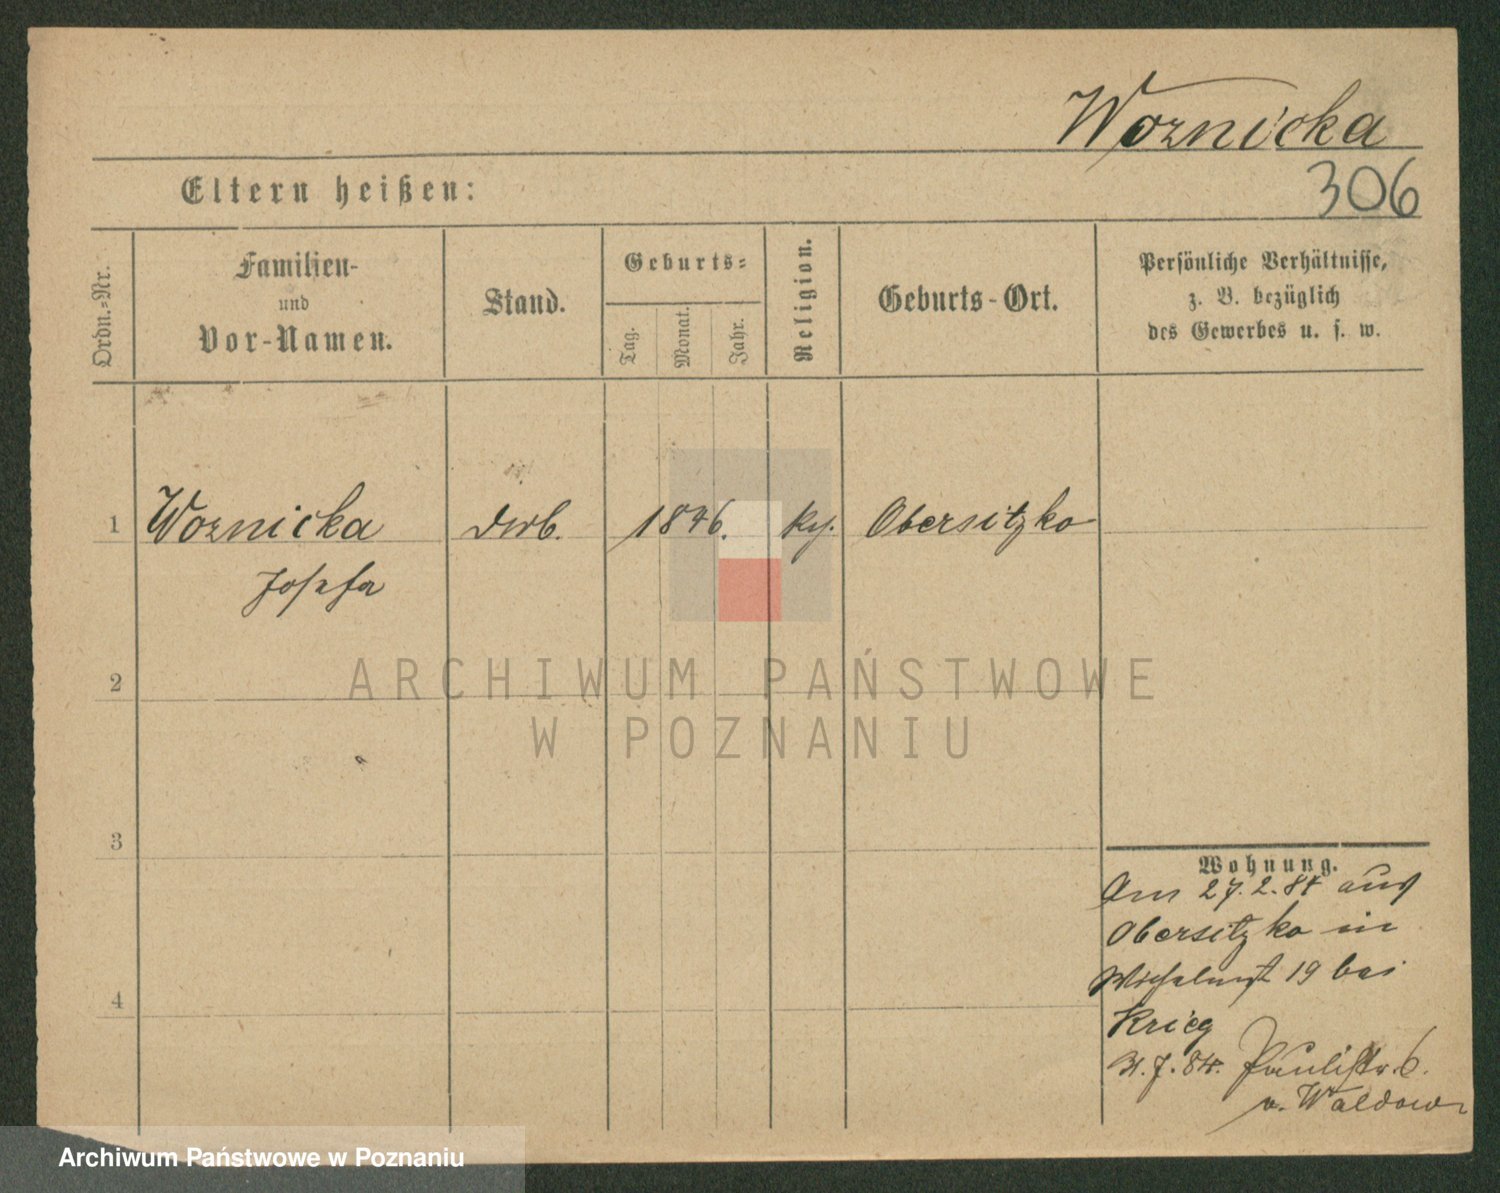 Woznicka
Eltern heißen:
306
Ordn.-Nr.
Familien-
und
Vor-Namen.
Stand.
Geburts-
Tag.
Monat.
Jahr.
Religion.
Geburts-Ort.
Persönliche Verhältnisse,
z. B. bezüglich
des Gewerbes u. s. w.
1
Woznicka
Josefa
1846.
Obersitzko
2
3
4
ARCHIWUM PAŃSTWOWE
W POZNANIU
Wohnung.
Am 27.2.84 aus
Obersitzko in
19 bei
Krieg
Paulistr. 6.
v. Waldow
Archiwum Państwowe w Poznaniu